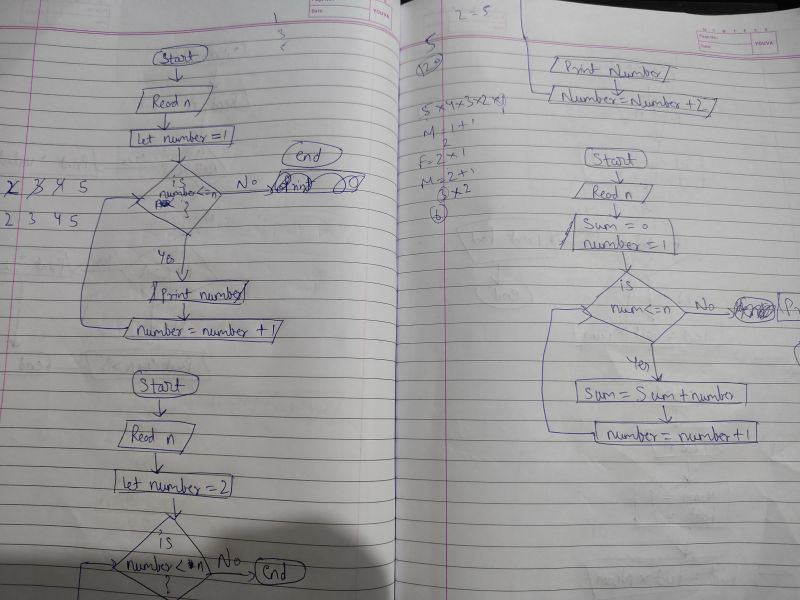 Date
YOUVA
1
3
5
Start
Read n
Let number=1
is
number<=n
?
No
end
Print
2 3 4 5
2 3 4 5
Yes
Print number
number = number + 1
Start
Read n
Let number=2
is
number<=n
?
No
end
M T W T F S S
Page No.:
Date:
YOUVA
2=5
5
120
5×4×3×2×1
M=1+1
2
F=2×1
M=2+1
3×2
6
Print Number
Number=Number+2
Start
Read n
Sum=0
number=1
is
num<=n
No
Yes
Sum=Sum+number
number=number+1